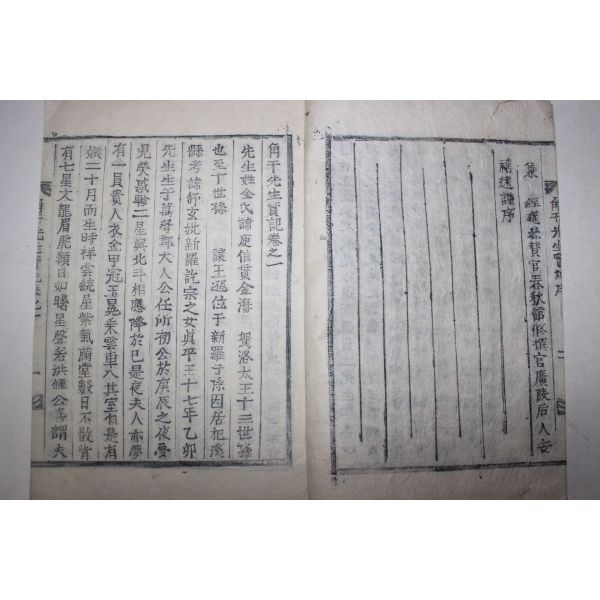 集 經筵參贊官春秋館修撰官廣陵后人安
禧遠謹序
角干先生實記序
角干先生實記卷之一
先生姓金氏諱庾信貫金海 駕洛太王十二世孫
也至十世孫 讓王遜位于新羅子孫因居杞溪
縣考諱舒玄妣新羅訖宗之女眞平王十七年乙卯
先生生于萬弩郡大人公任所初公於庚辰之夜夢
見熒惑鎭二星與北斗相應降於已是夜夫人亦夢
有一員貴人衣金甲冠玉冕乘雲車入其室自是有
娠二十月而生時祥雲繞屋紫氣蘭堂數日不散背
有七星文龍眉虎額目如曙星聲若洪鍾公喜謂夫